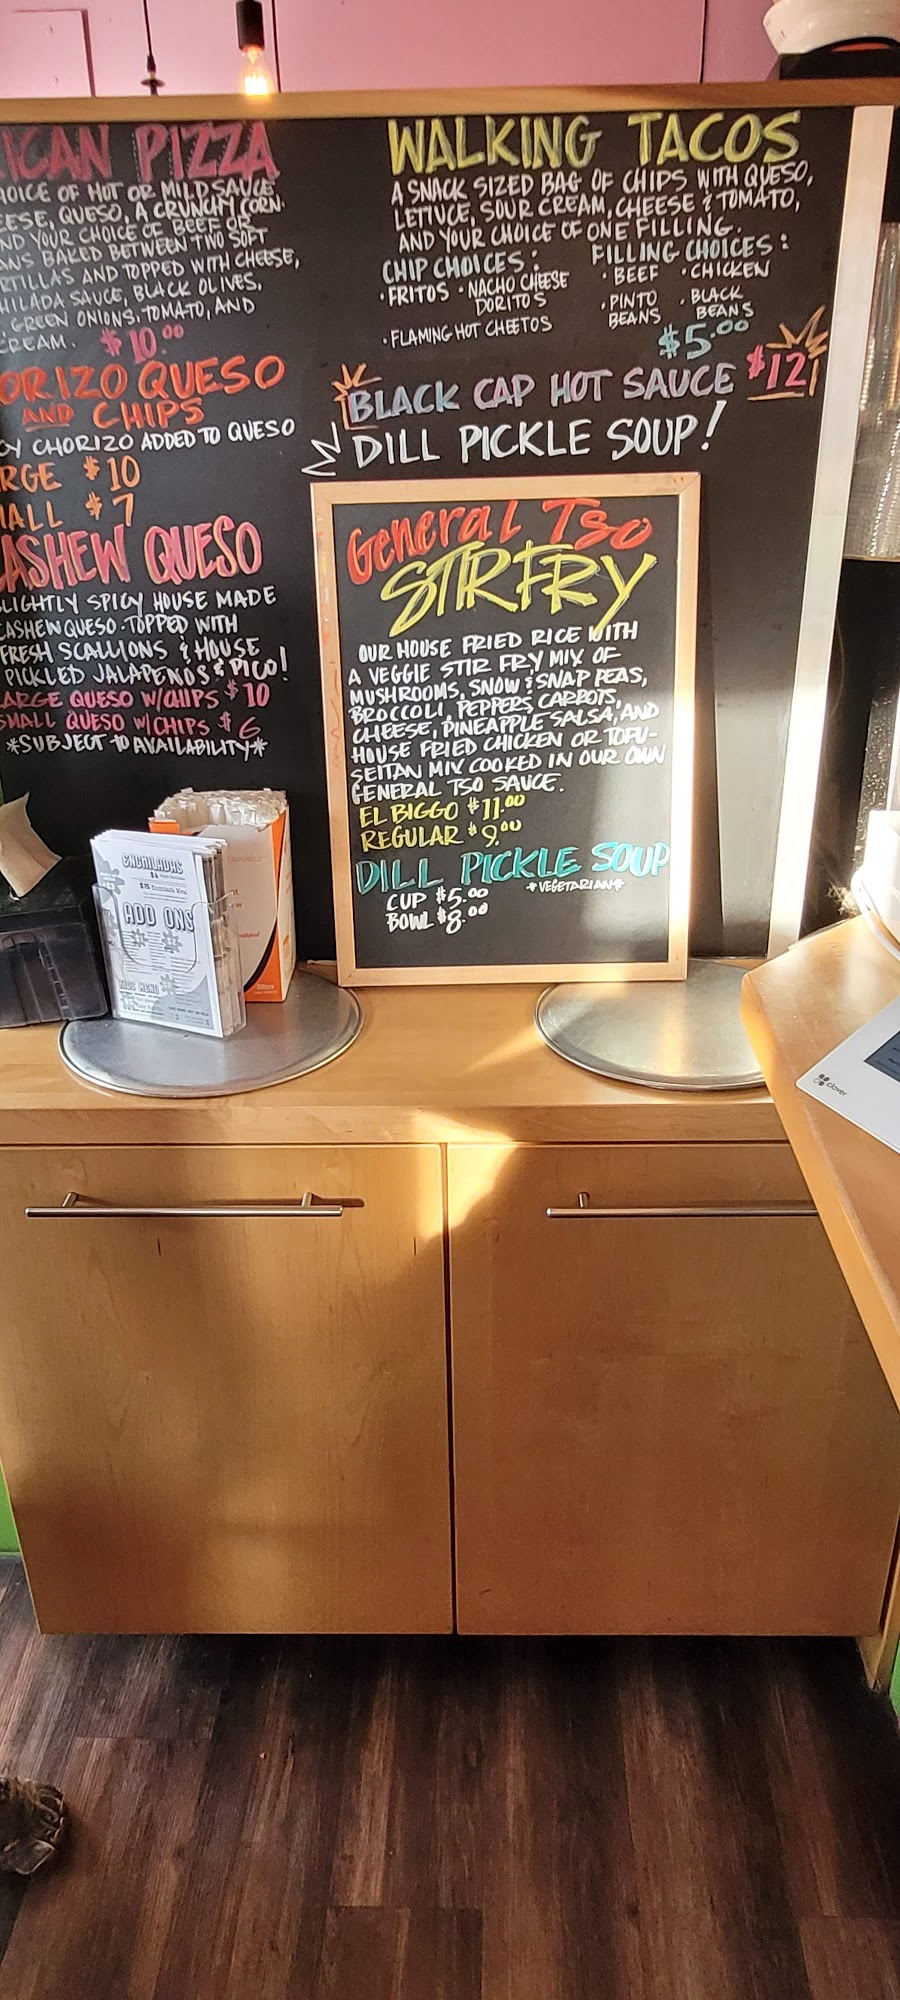 ICAN PIZZA
HOICE OF HOT OR MILD SAUCE,
EESE, QUESO, A CRUNCHY CORN
ND YOUR CHOICE OF BEEF OR
ANS BAKED BETWEEN TWO SOFT
RTILLAS AND TOPPED WITH CHEESE,
HILADA SAUCE, BLACK OLIVES,
GREEN ONIONS, TOMATO, AND
CREAM. $10.00
ORIZO QUESO
AND CHIPS
CY CHORIZO ADDED TO QUESO
RGE $10
MALL $7
CASHEW QUESO
SLIGHTLY SPICY HOUSE MADE
CASHEW QUESO TOPPED WITH
FRESH SCALLIONS & HOUSE
PICKLED JALAPENOS & PICO!
LARGE QUESO W/CHIPS $10
SMALL QUESO W/CHIPS $6
*SUBJECT TO AVAILABILITY*
WALKING TACOS
A SNACK SIZED BAG OF CHIPS WITH QUESO,
LETTUCE, SOUR CREAM, CHEESE & TOMATO,
AND YOUR CHOICE OF ONE FILLING.
CHIP CHOICES:
• FRITOS • NACHO CHEESE
DORITOS
• FLAMING HOT CHEETOS
FILLING CHOICES:
• BEEF • CHICKEN
• PINTO BEANS • BLACK BEANS
$5.00
BLACK CAP HOT SAUCE $12!
DILL PICKLE SOUP!
General Tso
STIRFRY
OUR HOUSE FRIED RICE WITH
A VEGGIE STIR FRY MIX OF
MUSHROOMS, SNOW & SNAP PEAS,
BROCCOLI, PEPPERS, CARROTS,
CHEESE, PINEAPPLE SALSA, AND
HOUSE FRIED CHICKEN OR TOFU-
SEITAN MIX COOKED IN OUR OWN
GENERAL TSO SAUCE.
EL BIGGO $11.00
REGULAR $9.00
DILL PICKLE SOUP
*VEGETARIAN*
CUP $5.00
BOWL $8.00
ENCHILADAS
ADD ONS
KIDS MENU
clover